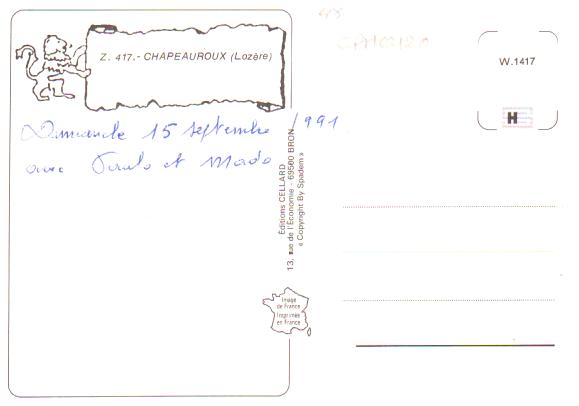 48
Z. 417.- CHAPEAUROUX (Lozère)
W.1417
H
Dimanche 15 septembre 1991
avec Paulo et Mado
Editions CELLARD
13, rue de l'Economie - 69500 BRON
« Copyright By Spadem »
Image
de France
Imprimée
en France